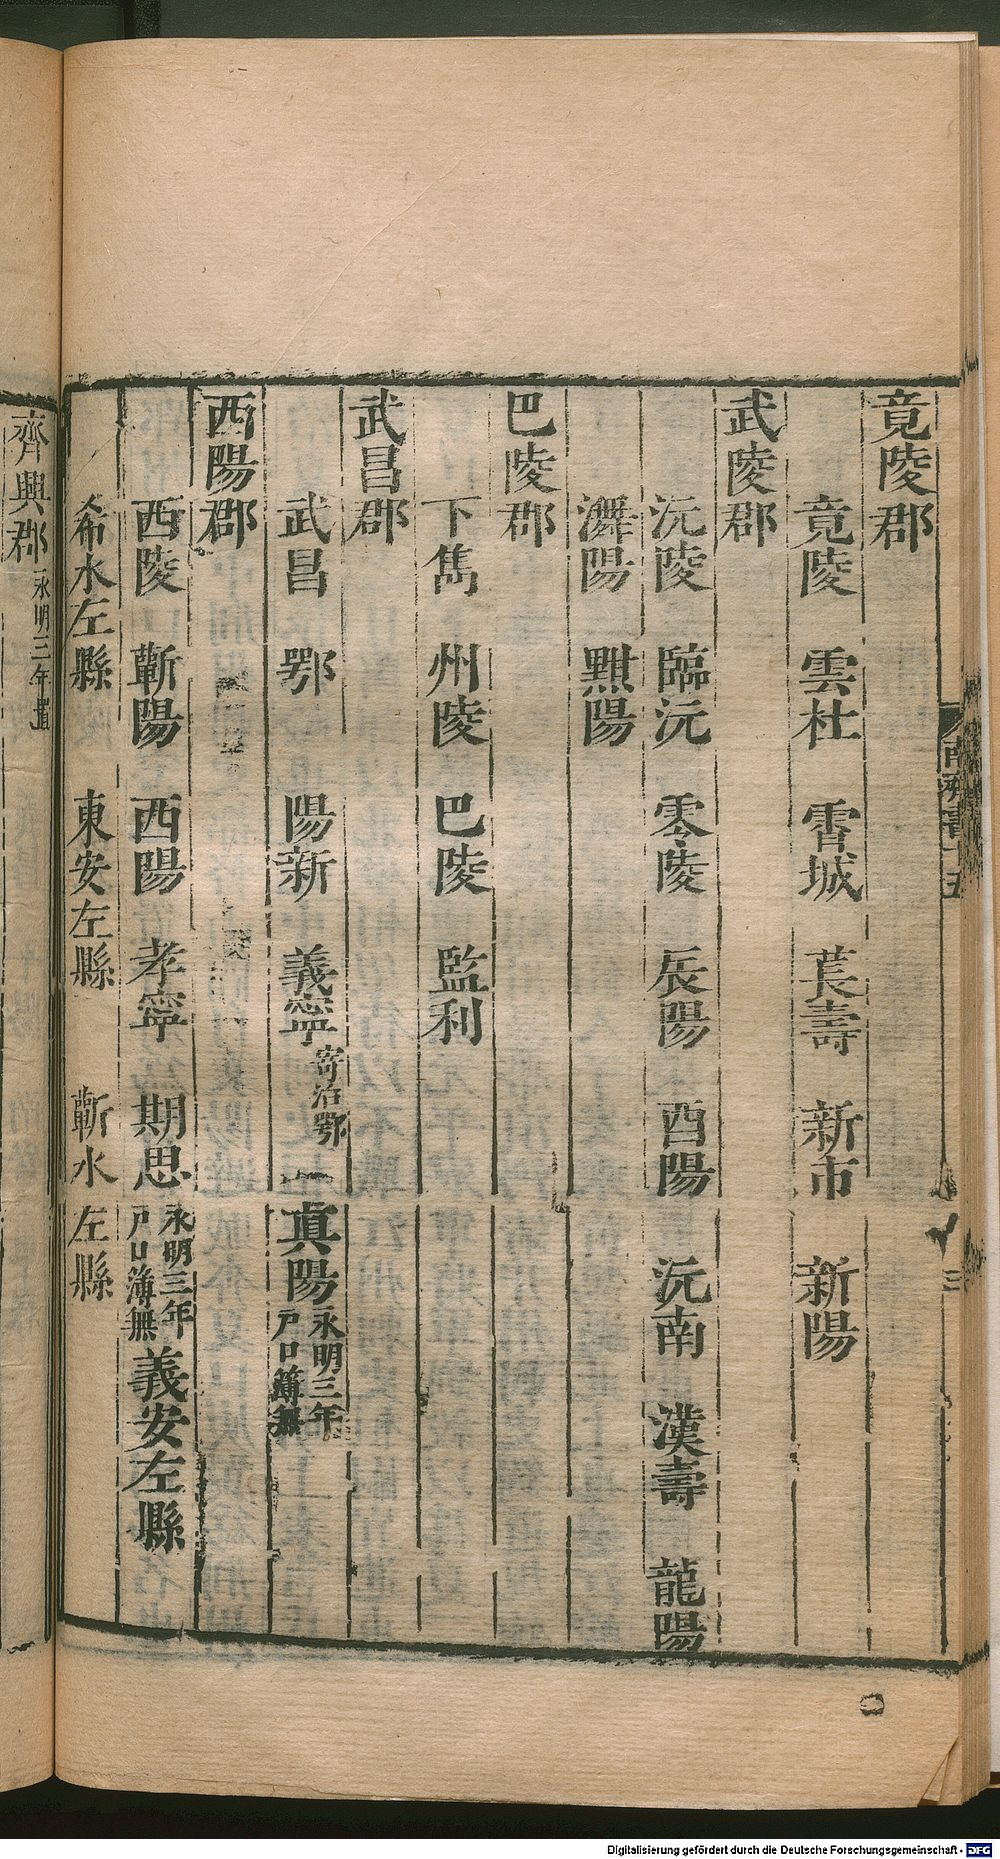 竟陵郡
竟陵　雲杜　霄城　萇壽　新市　新陽
武陵郡
沅陵　臨沅　零陵　辰陽　酉陽　沅南　漢壽　龍陽
㵲陽　黚陽
巴陵郡
下雋　州陵　巴陵　監利
武昌郡
武昌　鄂　陽新　義寧寄治鄂　真陽永明三年戶口簿無
西陽郡
西陵　蘄陽　西陽　孝寧　期思永明三年戶口簿無　義安左縣
希水左縣　東安左縣　蘄水左縣
齊興郡永明三年置
南齊書十五
三
Digitalisierung gefördert durch die Deutsche Forschungsgemeinschaft - DFG